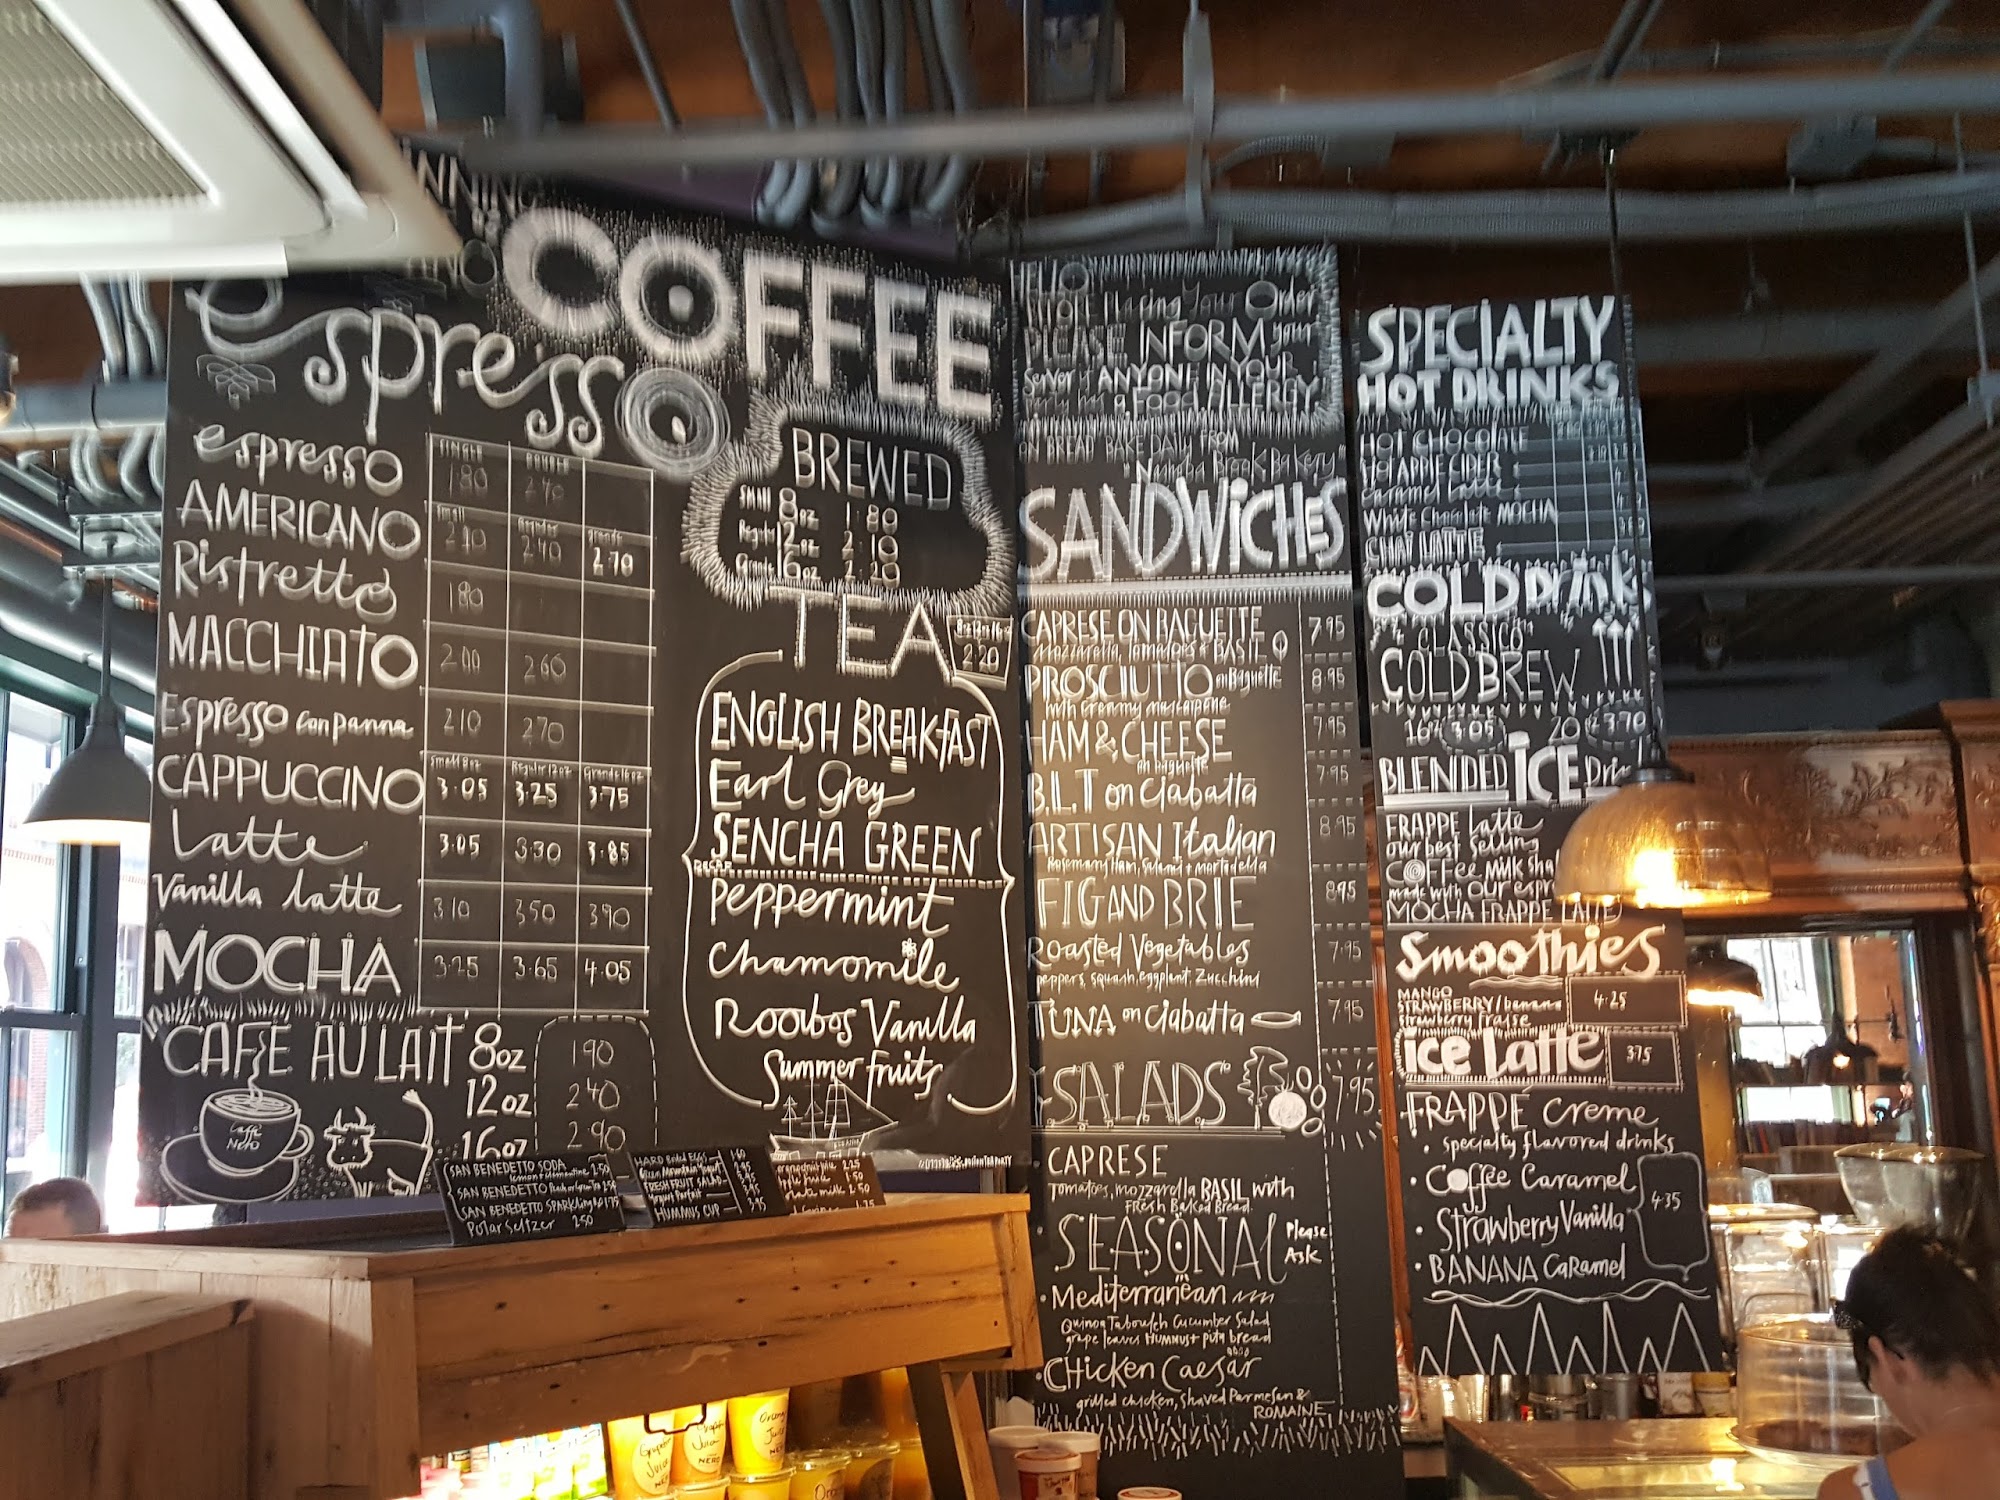 COFFEE
espresso
SINGLE DOUBLE
espresso 1.80 2.40
small Regular grande
AMERICANO 2.10 2.40 2.70
Ristretto 1.80
MACCHIATO 2.00 2.60
Espresso con panna 2.10 2.70
Small 8oz Regular 12oz Grande 16oz
CAPPUCCINO 3.05 3.25 3.75
Latte 3.05 3.30 3.85
Vanilla latte 3.10 3.50 3.90
MOCHA 3.25 3.65 4.05
CAFE AU LAIT 8oz 1.90
12oz 2.40
16oz 2.90
Caffe
NERO
BREWED
SMALL 8oz 1.80
Regular 12oz 2.10
Grande 16oz 2.20
TEA
2.20
ENGLISH BREAKFAST
Earl Grey
SENCHA GREEN
DECAF
Peppermint
Chamomile
Rooibos Vanilla
Summer fruits
SAN BENEDETTO SODA
lemon + clementine 2.50
SAN BENEDETTO
SAN BENEDETTO SPARKLING 1.75
Polar Seltzer 2.50
HARD Boiled EGGS 1.60
FRESH FRUIT SALAD
Yogurt Parfait
HUMMUS CUP 3.95
HELLO
BEFORE Placing Your Order
PLEASE INFORM your
Server if ANYONE IN YOUR
Party has a FOOD ALLERGY
ON BREAD BAKE DAILY FROM
SANDWICHES
CAPRESE ON BAGUETTE 7.95
Mozzarella, Tomatoes + BASIL
PROSCIUTTO on Baguette 8.95
with creamy mascarpone
HAM & CHEESE 7.95
on Baguette
B.L.T on Ciabatta 7.95
ARTISAN Italian 8.95
Rosemary Ham, Salami + mortadella
FIG AND BRIE 8.95
Roasted Vegetables 7.95
peppers, squash, eggplant, Zucchini
TUNA on Ciabatta 7.95
SALADS 7.95
CAPRESE
Tomatoes, mozzarella BASIL with
FRESH BAKED BREAD.
• SEASONAL Please
Ask
• Mediterranean
Quinoa Tabouleh Cucumber Salad
grape leaves HUMMUS + pita bread
• CHicken Caesar
grilled chicken, Shaved Parmesan &
ROMAINE
SPECIALTY
HOT DRINKS
HOT CHOCOLATE
Hot APPLE CIDER
Caramel Latte
White Chocolate MOCHA
CHAI LATTE
COLD Drinks
CLASSICO
COLD BREW
16oz 3.05 20 3.70
BLENDED ICE Drin
FRAPPE latte
our best selling
COFFEE MILK Sha
made with our espr
MOCHA FRAPPE LATTE
Smoothies
MANGO
STRAWBERRY/banana 4.25
Strawberry Fraise
ice Latte 3.75
FRAPPE Creme
• specialty flavored drinks
• Coffee Caramel
• Strawberry Vanilla 4.35
• BANANA Caramel
Juice
NERO